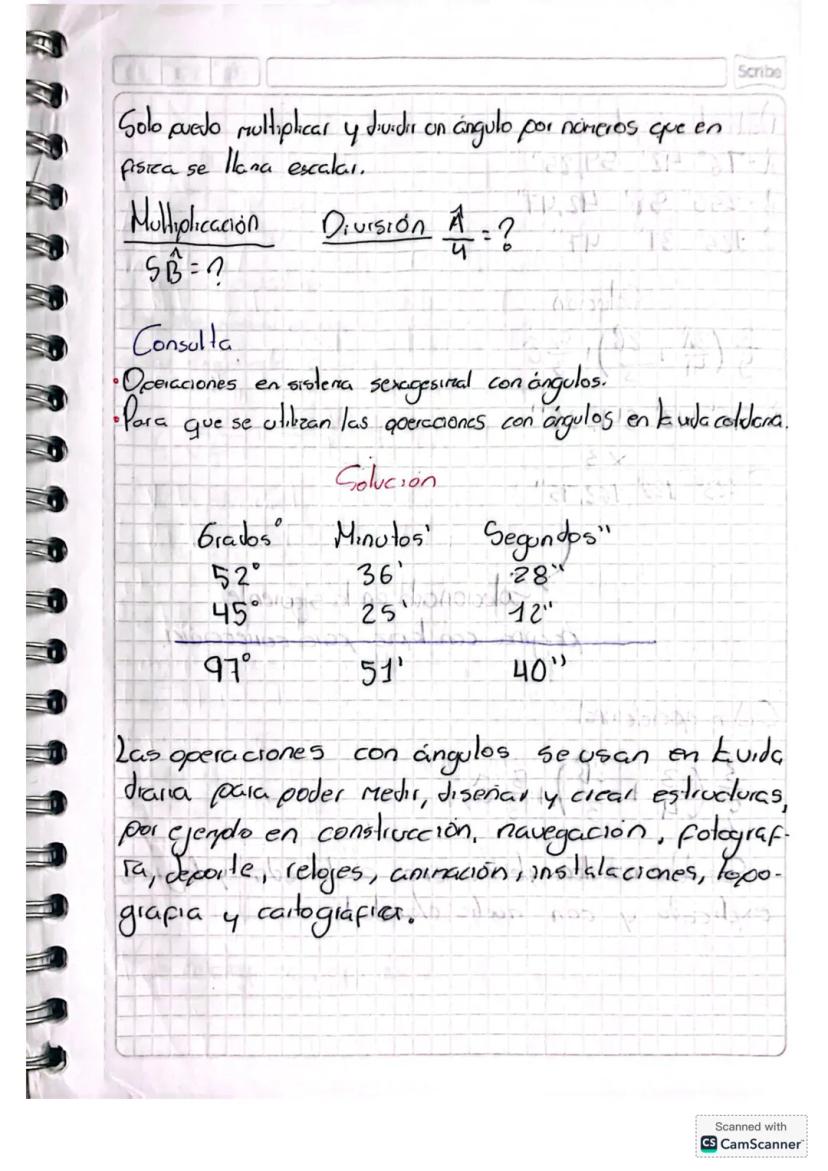 Scribe
Solo puedo multiplicar y dividir un ángulo por números que en
física se llama escalar.
Multiplicación División Â/4 = ?
5B̂ = ?
Consulta
•Operaciones en sistema sexagesimal con ángulos.
•Para que se utilizan las operaciones con ángulos en tu vida cotidiana.
Solución
Grados° Minutos' Segundos"
52° 36' 28"
45° 25' 12"
97° 51' 40"
Las operaciones con ángulos se usan en tu vida
diaria para poder medir, diseñar y crear estructuras,
por ejemplo en construcción, navegación, fotograf-
ía, deporte, relojes, animación, instalaciones, topo-
grafia y cartográfia.
Scanned with
CS CamScanner